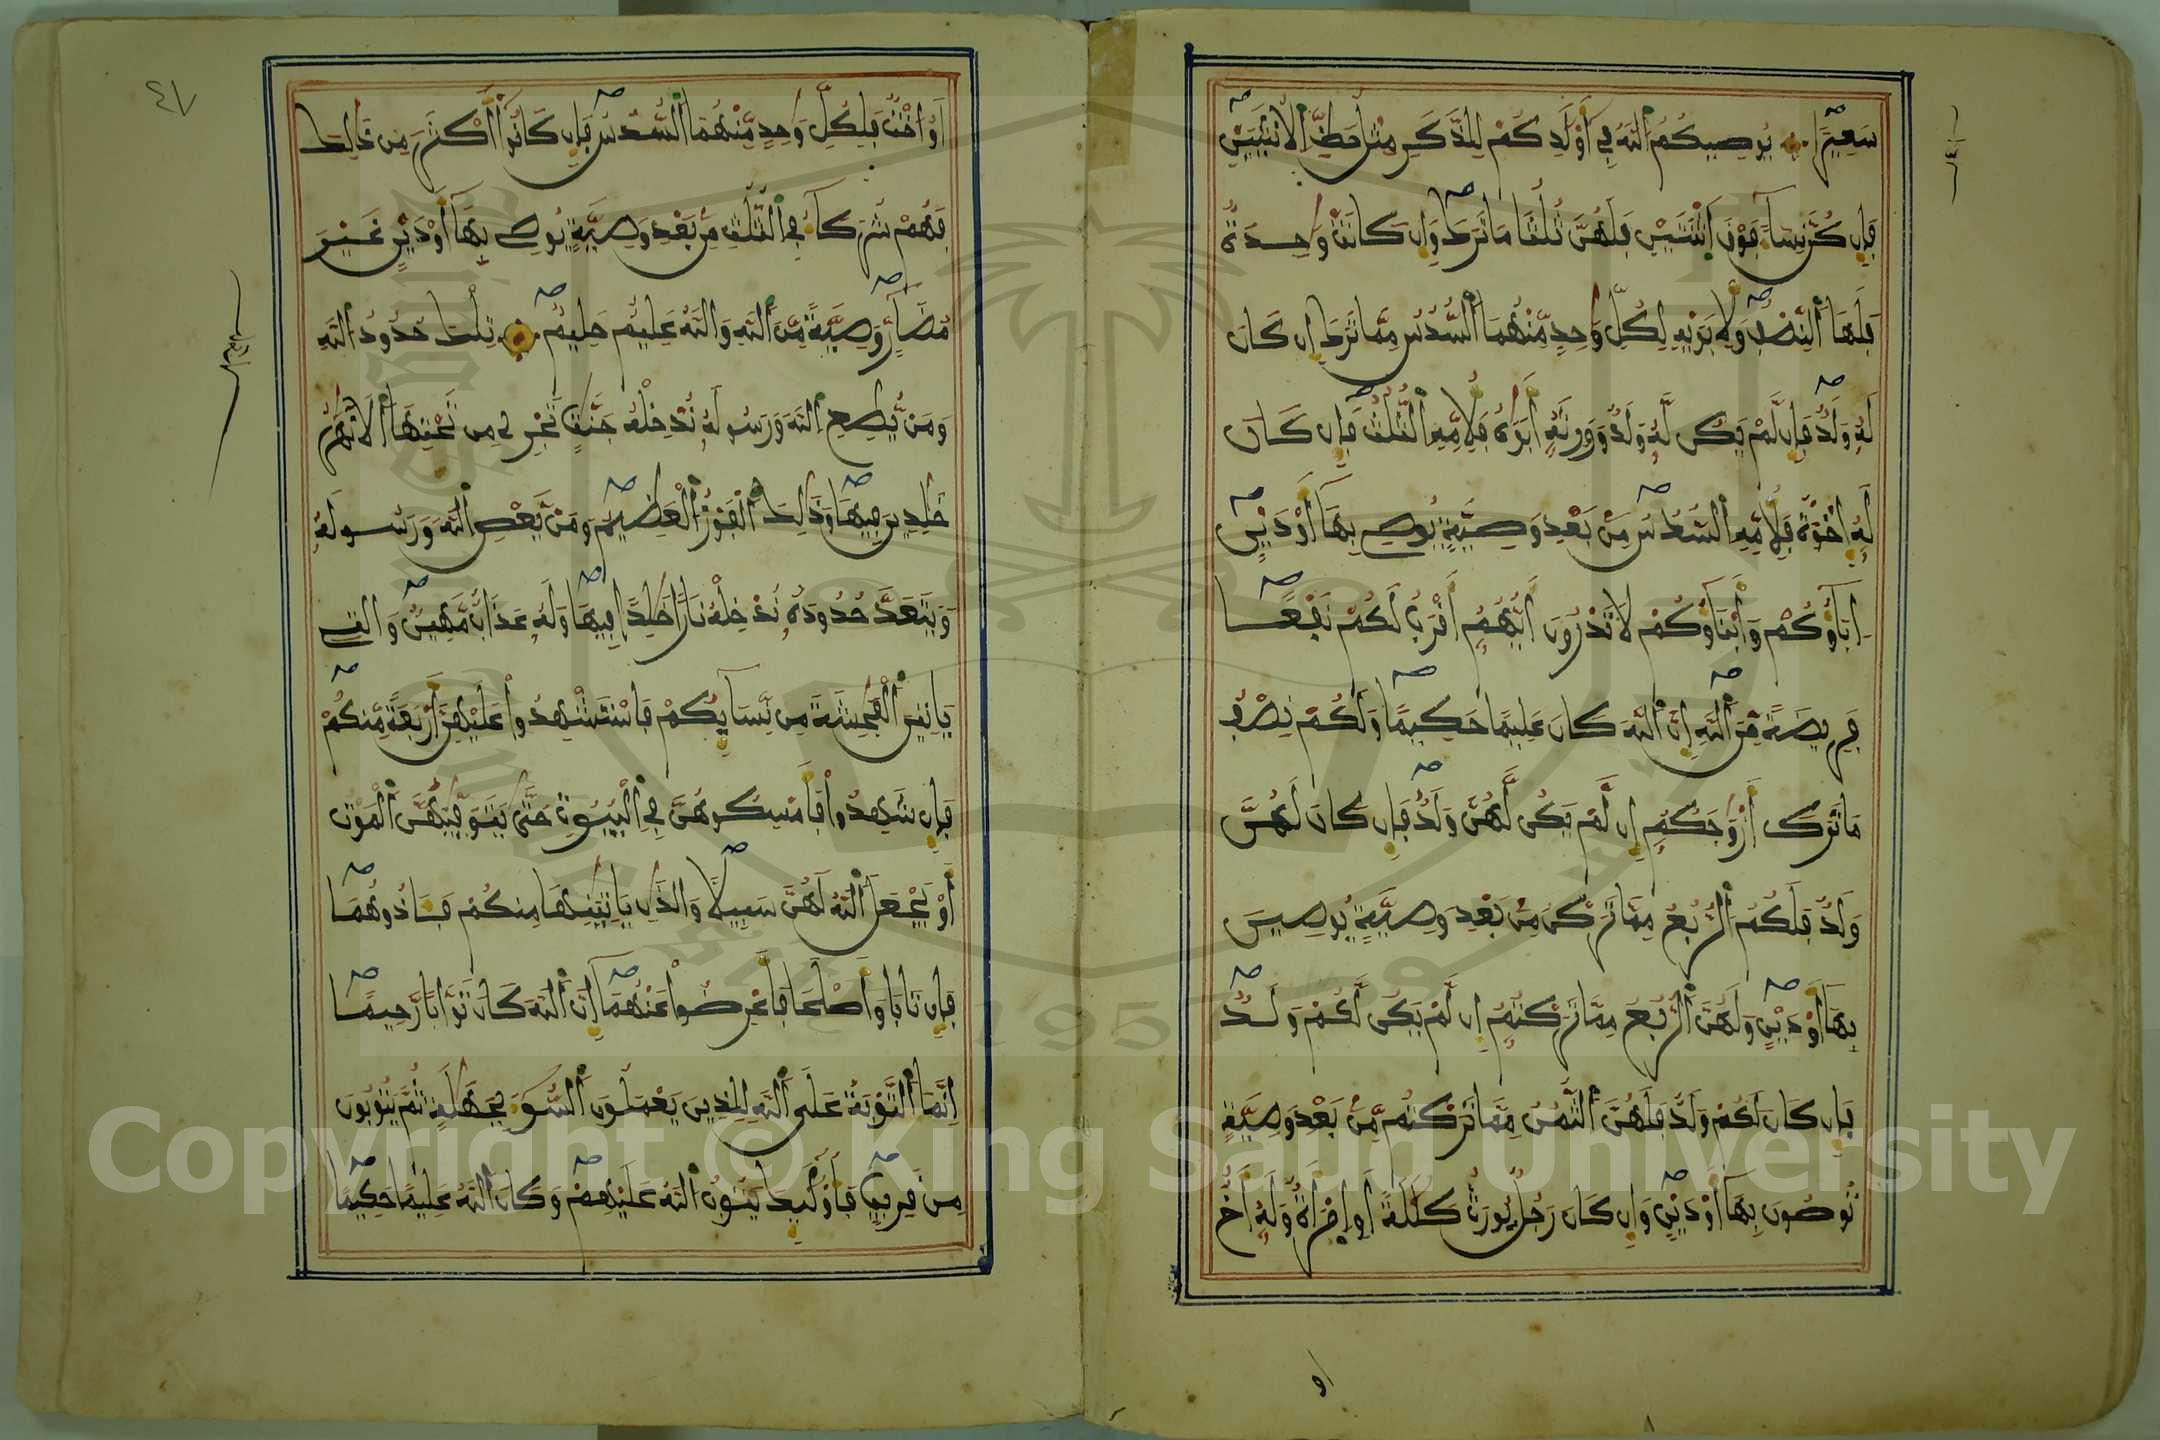 سَعِيرًا يُوصِيكُمُ اللَّهُ فِي أَوْلَدِكُمْ لِلذَّكَرِ مِثْلُ حَظِّ الْأُنثَيَيْنِ
فَإِن كُنَّ نِسَاءً فَوْقَ اثْنَتَيْنِ فَلَهُنَّ ثُلُثَا مَا تَرَكَ وَإِن كَانَتْ وَاحِدَةٌ
فَلَهَا النِّصْفُ وَلِأَبَوَيْهِ لِكُلِّ وَاحِدٍ مِّنْهُمَا السُّدُسُ مِمَّا تَرَكَ إِن كَانَ
لَهُ وَلَدٌ فَإِن لَّمْ يَكُن لَّهُ وَلَدٌ وَوَرِثَهُ أَبَوَاهُ فَلِأُمِّهِ الثُّلُثُ فَإِن كَانَ
لَهُ إِخْوَةٌ فَلِأُمِّهِ السُّدُسُ مِن بَعْدِ وَصِيَّةٍ يُوصِي بِهَا أَوْ دَيْنٍ
ءَابَاؤُكُمْ وَأَبْنَاؤُكُمْ لَا تَدْرُونَ أَيُّهُمْ أَقْرَبُ لَكُمْ نَفْعًا
فَرِيضَةً مِّنَ اللَّهِ إِنَّ اللَّهَ كَانَ عَلِيمًا حَكِيمًا وَلَكُمْ نِصْفُ
مَا تَرَكَ أَزْوَاجُكُمْ إِن لَّمْ يَكُن لَّهُنَّ وَلَدٌ فَإِن كَانَ لَهُنَّ
وَلَدٌ فَلَكُمُ الرُّبُعُ مِمَّا تَرَكْنَ مِن بَعْدِ وَصِيَّةٍ يُوصِينَ
بِهَا أَوْ دَيْنٍ وَلَهُنَّ الرُّبُعُ مِمَّا تَرَكْتُمْ إِن لَّمْ يَكُن لَّكُمْ وَلَدٌ
فَإِن كَانَ لَكُمْ وَلَدٌ فَلَهُنَّ الثُّمُنُ مِمَّا تَرَكْتُم مِّن بَعْدِ وَصِيَّةٍ
تُوصُونَ بِهَا أَوْ دَيْنٍ وَإِن كَانَ رَجُلٌ يُورَثُ كَلَالَةً أَوِ امْرَأَةٌ وَلَهُ أَخٌ
أَوْ أُخْتٌ فَلِكُلِّ وَاحِدٍ مِّنْهُمَا السُّدُسُ فَإِن كَانُوا أَكْثَرَ مِن ذَلِكَ
فَهُمْ شُرَكَاءُ فِي الثُّلُثِ مِن بَعْدِ وَصِيَّةٍ يُوصِي بِهَا أَوْ دَيْنٍ غَيْرَ
مُضَارٍّ وَصِيَّةً مِّنَ اللَّهِ وَاللَّهُ عَلِيمٌ حَلِيمٌ تِلْكَ حُدُودُ اللَّهِ
وَمَن يُطِعِ اللَّهَ وَرَسُولَهُ نُدْخِلْهُ جَنَّاتٍ تَجْرِي مِن تَحْتِهَا الْأَنْهَارُ
خَالِدِينَ فِيهَا وَذَلِكَ الْفَوْزُ الْعَظِيمُ وَمَن يَعْصِ اللَّهَ وَرَسُولَهُ
وَيَتَعَدَّ حُدُودَهُ نُدْخِلْهُ نَارًا خَالِدًا فِيهَا وَلَهُ عَذَابٌ مُّهِينٌ وَالَّتِي
يَاتِينَ الْفَاحِشَةَ مِن نِّسَائِكُمْ فَاسْتَشْهِدُوا عَلَيْهِنَّ أَرْبَعَةً مِّنكُمْ
فَإِن شَهِدُوا فَأَمْسِكُوهُنَّ فِي الْبُيُوتِ حَتَّى يَتَوَفَّاهُنَّ الْمَوْتُ
أَوْ يَجْعَلَ اللَّهُ لَهُنَّ سَبِيلًا وَالَّذَانِ يَاتِيَانِهَا مِنكُمْ فَئَاذُوهُمَا
فَإِن تَابَا وَأَصْلَحَا فَأَعْرِضُوا عَنْهُمَا إِنَّ اللَّهَ كَانَ تَوَّابًا رَّحِيمًا
إِنَّمَا التَّوْبَةُ عَلَى اللَّهِ لِلَّذِينَ يَعْمَلُونَ السُّوءَ بِجَهَالَةٍ ثُمَّ يَتُوبُونَ
مِن قَرِيبٍ فَأُولَئِكَ يَتُوبُ اللَّهُ عَلَيْهِمْ وَكَانَ اللَّهُ عَلِيمًا حَكِيمًا
٤٧
Copyright © King Saud University
1957